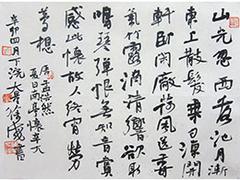 山光忽西落池月漸
東上散髮乘夕涼開
軒卧閑敞荷風送香
氣竹露滴清響欲取
鳴琴彈恨無知音賞
感此懷故人終宵勞
夢想
唐孟浩然
夏日南亭懷辛大
辛卯四月下浣大書